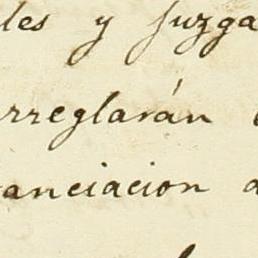 les y Juzga
rreglarán
anciacion a